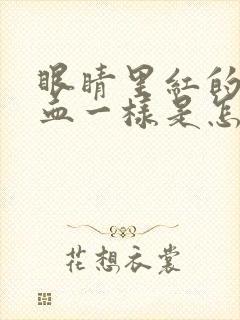 眼睛里红的
血一样是怎
花想衣裳